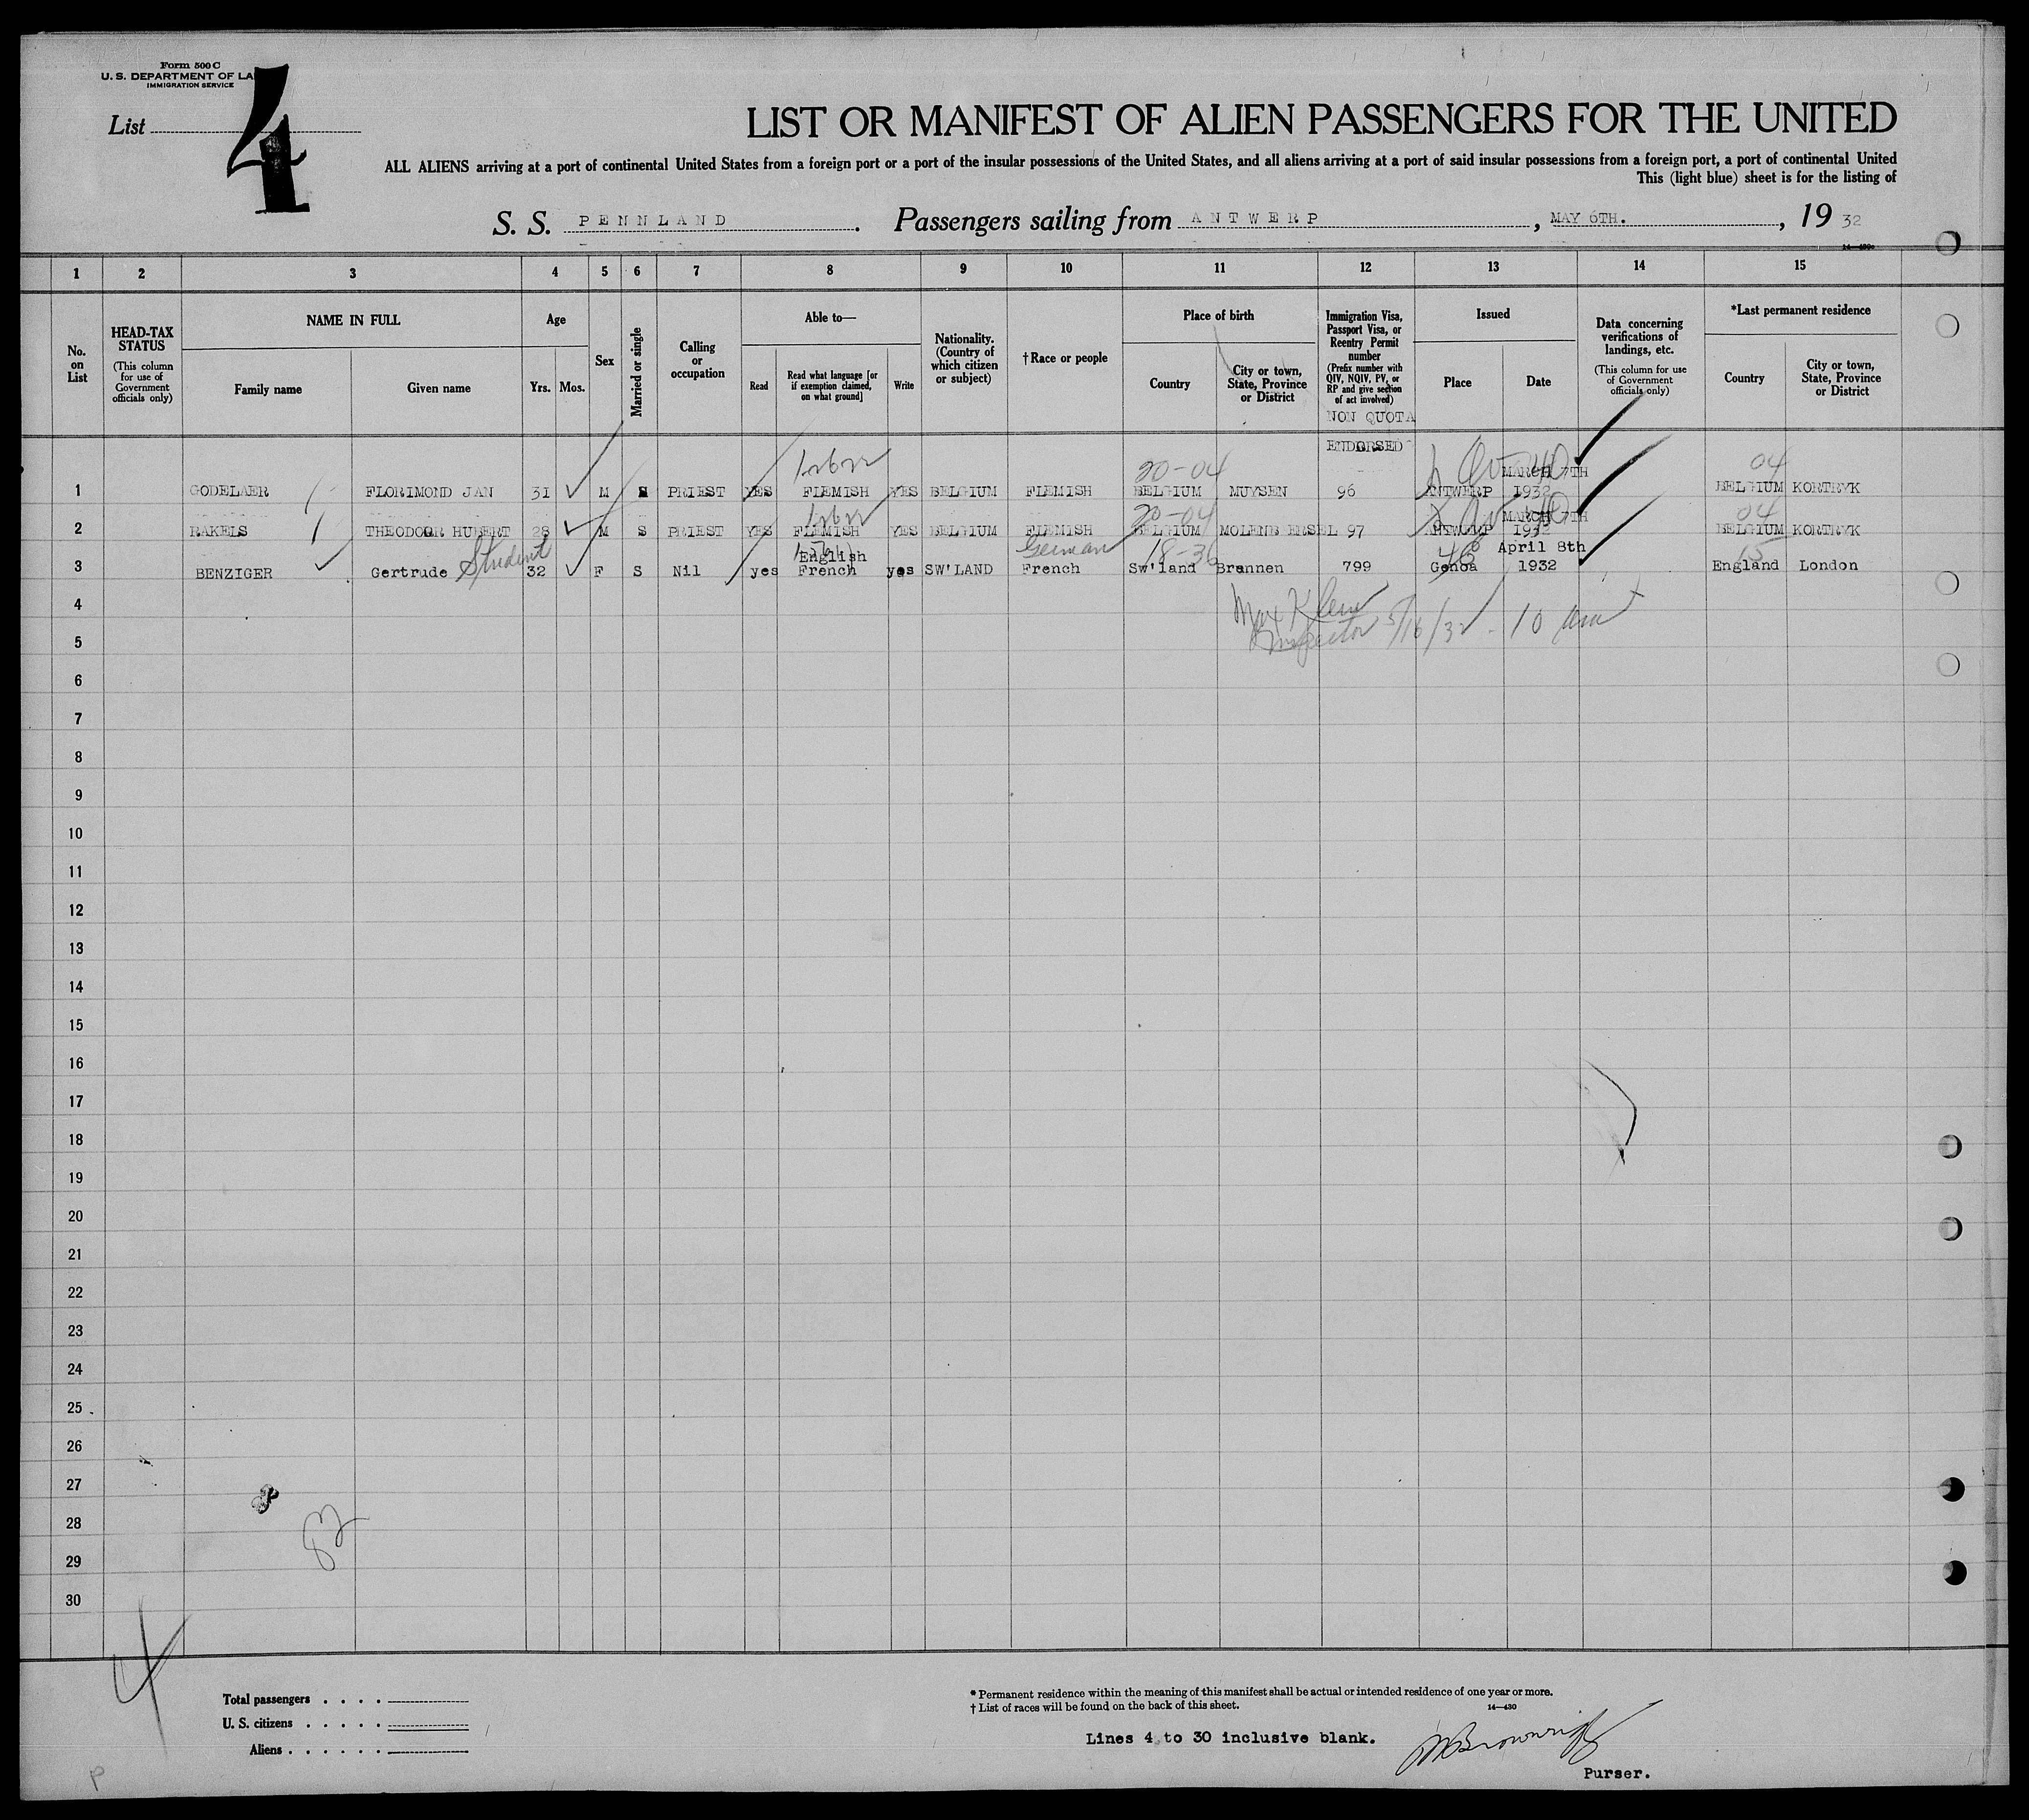 Form 500 C
U. S. DEPARTMENT OF LA
IMMIGRATION SERVICE
List 4
LIST OR MANIFEST OF ALIEN PASSENGERS FOR THE UNITED
ALL ALIENS arriving at a port of continental United States from a foreign port or a port of the insular possessions of the United States, and all aliens arriving at a port of said insular possessions from a foreign port, a port of continental United
This (light blue) sheet is for the listing of
S. S. PENNLAND. Passengers sailing from ANTWERP, MAY 6TH., 19 32
14—430
1 2 3 4 5 6 7 8 9 10 11 12 13 14 15
No. on List
HEAD-TAX STATUS
(This column for use of Government officials only)
NAME IN FULL
Family name Given name
Age
Yrs. Mos.
Sex
Married or single
Calling or occupation
Able to—
Read
Read what language [or if exemption claimed, on what ground]
Write
Nationality. (Country of which citizen or subject)
†Race or people
Place of birth
Country
City or town, State, Province or District
Immigration Visa, Passport Visa, or Reentry Permit number
(Prefix number with QIV, NQIV, PV, or RP and give section of act involved)
NON QUOTA
ENDORSED
Issued
Place Date
Data concerning verifications of landings, etc.
(This column for use of Government officials only)
*Last permanent residence
Country
City or town, State, Province or District
20-04 MARCH 7TH 04
1 GODELAER FLORIMOND JAN 31 M S PRIEST YES FLEMISH YES BELGIUM FLEMISH BELGIUM MUYSEN 96 ANTWERP 1932 BELGIUM KORTRYK
20-04 MARCH 7TH 04
2 RAKELS THEODOOR HUBERT 28 M S PRIEST YES FLEMISH YES BELGIUM FLEMISH BELGIUM MOLENBERSEL 97 ANTWERP 1932 BELGIUM KORTRYK
Student English German 18-36 April 8th 15
3 BENZIGER Gertrude 32 F S Nil yes French yes SW'LAND French Sw'land Brunnen 799 Genoa 1932 England London
4 Max Klein
5 Inspector 5/16/32 - 10 am
6
7
8
9
10
11
12
13
14
15
16
17
18
19
20
21
22
23
24
25
26
27
28
29
30
4
Total passengers . . . .
U. S. citizens . . . . .
Aliens . . . . . .
* Permanent residence within the meaning of this manifest shall be actual or intended residence of one year or more.
† List of races will be found on the back of this sheet.
14—430
Lines 4 to 30 inclusive blank.
Purser.
P